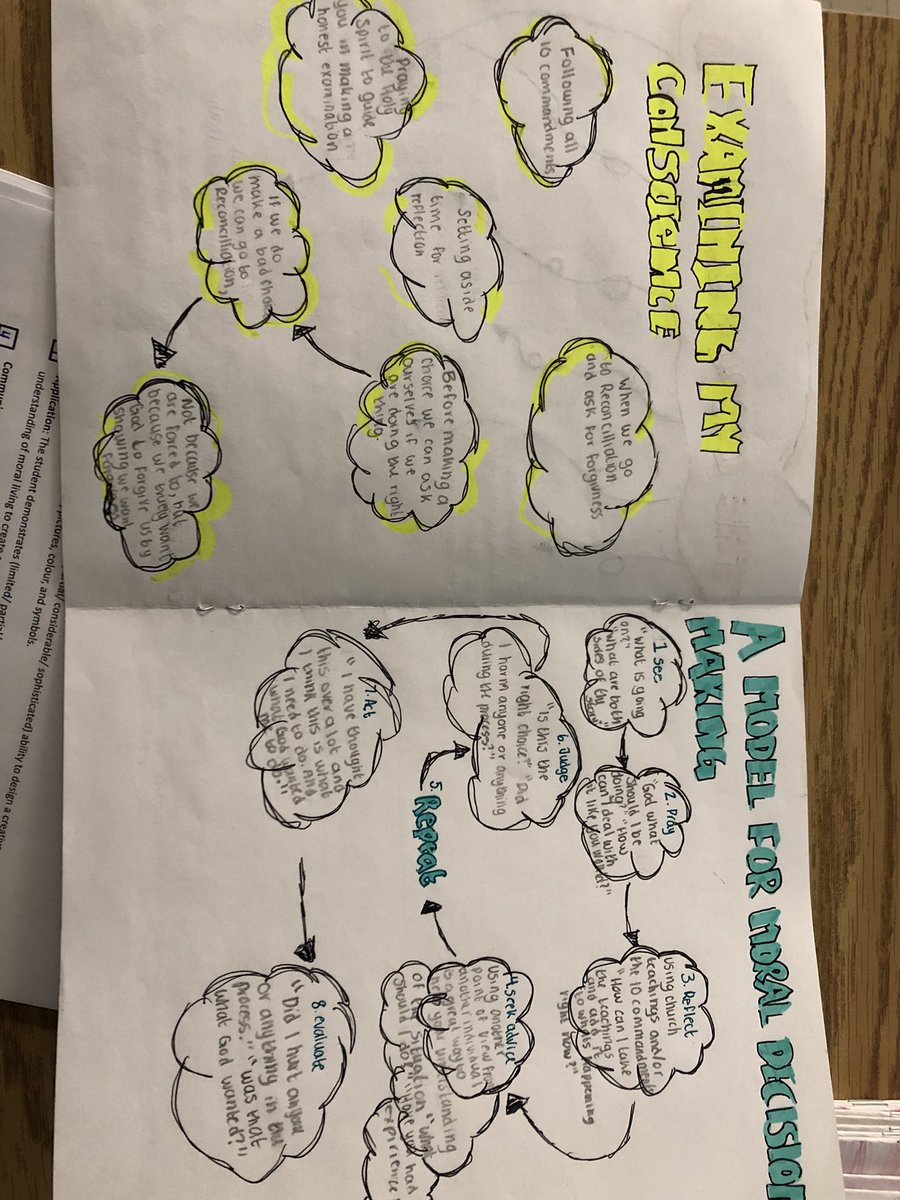 EXAMINING MY
CONSCIENCE
Following all
10 commandments
When we go
to Reconciliation
and ask for forgivness
praying
to the Holy
Spirit to guide
you in making a
honest examination
Setting aside
time for
reflection
Before making a
choice we can ask
ourselves if we
are doing the right
thing
If we do
make a bad choice
we can go to
Reconciliation,
Not because we
are forced to, but
because we truely want
God to forgive us by
showing we want
A MODEL FOR MORAL DECISION
MAKING
1 see
"what is going
on?"
"what are both
sides of the
2. Pray
"God what
should I be
doing?" "How
can I deal with
it like you would?"
3. Reflect
using church
teachings and/or
the 10 commandments
"How can I take
the teachings
and add it
to what is happening
right now?"
4. seek advice
using another
point of view from
another individual
is a great way to
help your understanding
of the situation "what
should I do?" "Have you had
expirience
5. Repeat
6. Judge
"Is this the
right choice?" "Did
I harm anyone or anything
during the process?"
7. Act
"I have thought
this over alot and
I think this is what
I need to do. And
what God wanted
me to do"
8. evaluate
"Did I hurt anyone
or anything in the
process" "was that
what God wanted?"
pplication: The student demonstrates (limited/ partial/ considerable/ sophisticated) ability to design a creative
understanding of moral living to create
pictures, colour, and symbols.
4